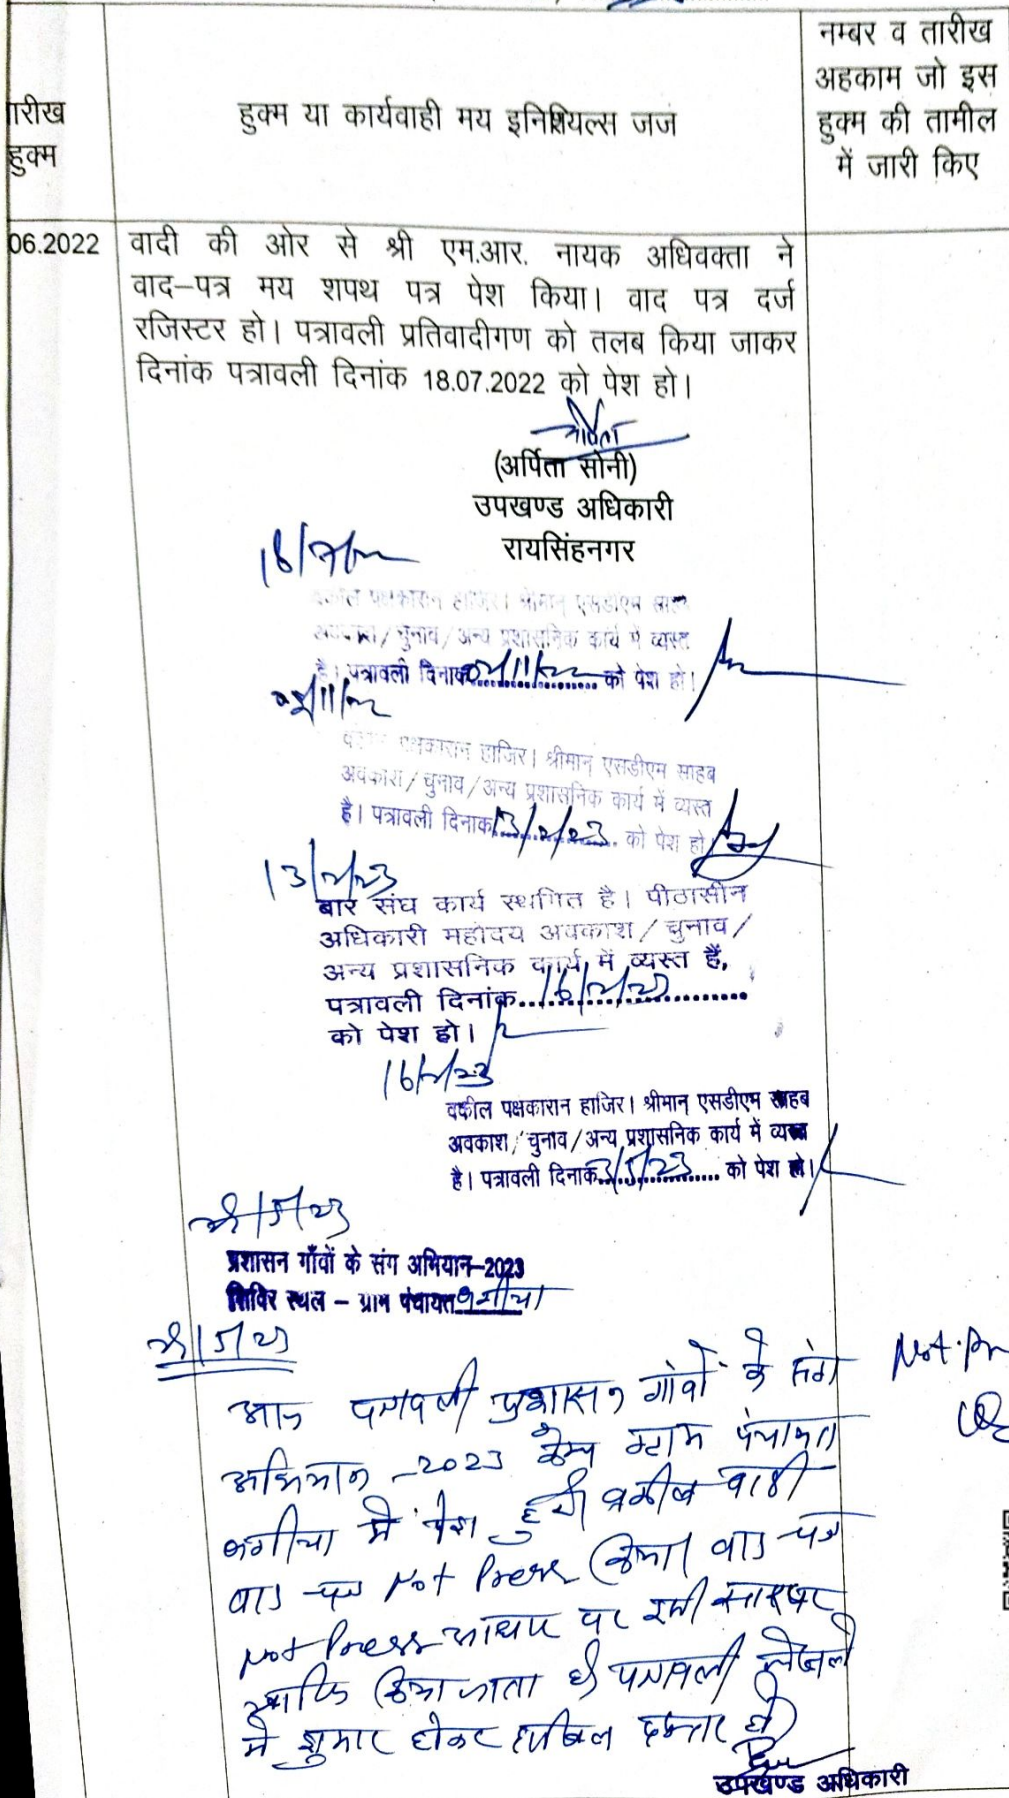 नम्बर व तारीख
अहकाम जो इस
हुक्म की तामील
में जारी किए
ारीख
हुक्म
हुक्म या कार्यवाही मय इनिशियल्स जज
06.2022
वादी की ओर से श्री एम.आर. नायक अधिवक्ता ने
वाद-पत्र मय शपथ पत्र पेश किया। वाद पत्र दर्ज
रजिस्टर हो। पत्रावली प्रतिवादीगण को तलब किया जाकर
दिनांक पत्रावली दिनांक 18.07.2022 को पेश हो।
(अर्पिता सोनी)
उपखण्ड अधिकारी
रायसिंहनगर
18/7/22
वकील पक्षकारान हाजिर। श्रीमान् एसडीएम साहब
अवकाश/चुनाव/अन्य प्रशासनिक कार्य में व्यस्त
है। पत्रावली दिनांक......... को पेश हो।
पक्षकारान हाजिर। श्रीमान् एसडीएम साहब
अवकाश/चुनाव/अन्य प्रशासनिक कार्य में व्यस्त
है। पत्रावली दिनांक 13/2/23 को पेश हो
13/2/23
बार संघ कार्य स्थगित है। पीठासीन
अधिकारी महोदय अवकाश/चुनाव/
अन्य प्रशासनिक कार्य में व्यस्त हैं,
पत्रावली दिनांक...16/2/23.........
को पेश हो।
16/2/23
वकील पक्षकारान हाजिर। श्रीमान् एसडीएम साहब
अवकाश/चुनाव/अन्य प्रशासनिक कार्य में व्यस्त
है। पत्रावली दिनांक 3/5/23 को पेश हो।
/5/23
प्रशासन गाँवों के संग अभियान-2023
शिविर स्थल - ग्राम पंचायत
/5/23
Not Pr
आज पत्रावली प्रशासन गांवों के संग
अभियान -2023 केम्प ग्राम पंचायत
में पेश हुई। वकील वादी
वाद पत्र Not Press किया। वाद पत्र
Not Press आधार पर इसी स्तर पर
खारिज किया जाता है। पत्रावली फैसले
में शुमार होकर दाखिल दफ्तर हो।
उपखण्ड अधिकारी